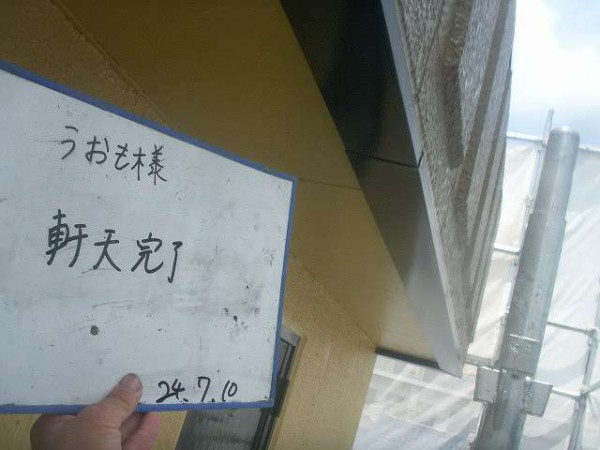 うおも様
軒天完了
24.7.10